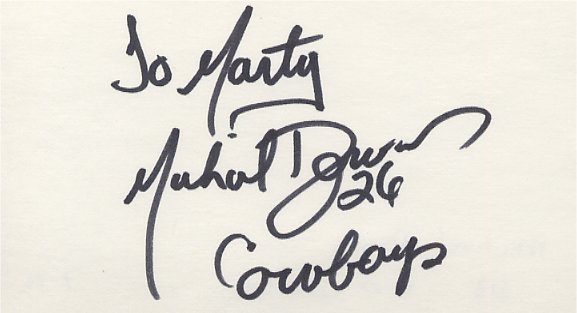 To Marty
Michael Downs
26
Cowboys